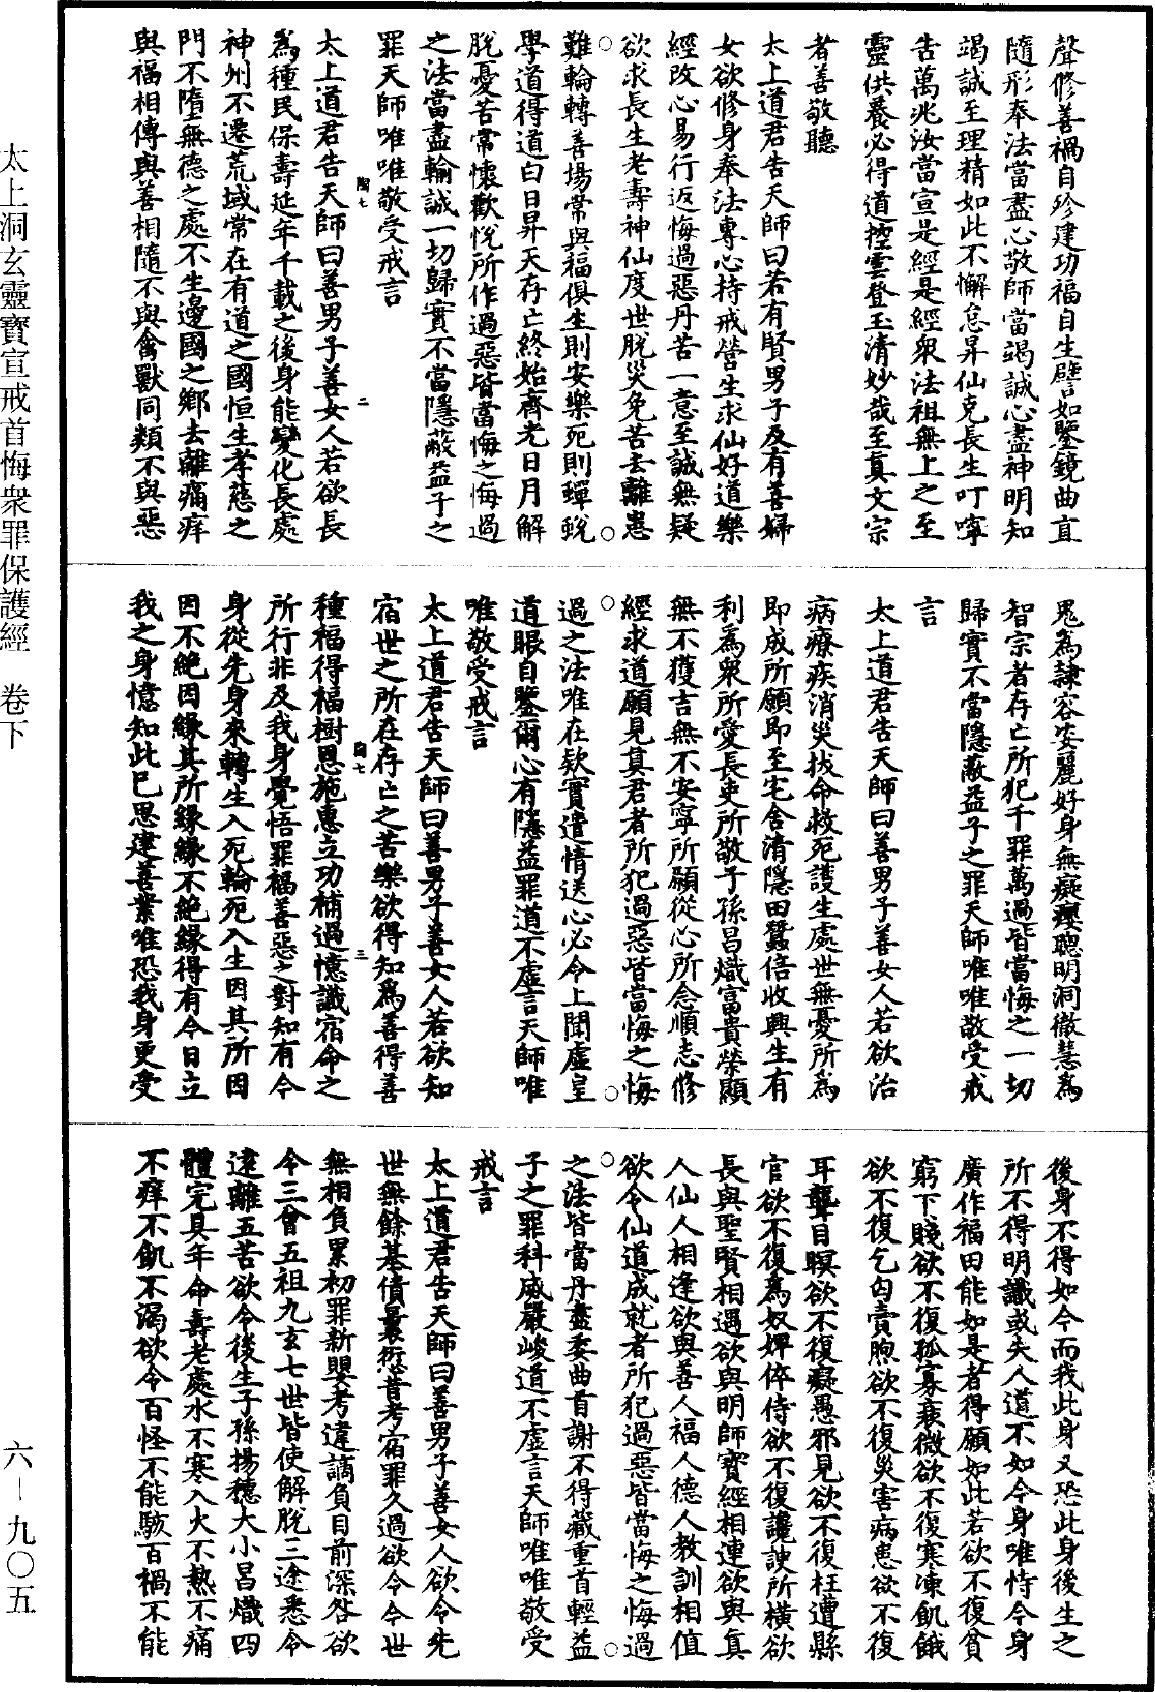 聲修善禍自殄建功福自生譬如鑒鏡曲直
隨形奉法當盡心敬師當竭誠心盡神明知
竭誠至理精如此不懈怠昇仙克長生叮嚀
告萬兆汝當宣是經是經衆法祖無上之至
靈供養必得道控雲登玉清妙哉至真文宗
者善敬聽
太上道君告天師曰若有賢男子及有善婦
女欲修身奉法專心持戒營生求仙好道樂
經改心易行返悔過惡丹苦一意至誠無疑
欲求長生老壽神仙度世脫災免苦去離患
難輪轉善場常與福俱生則安樂死則蟬蛻
學道得道白日昇天存亡終始齊光日月解
脫憂苦常懷歡悅所作過惡皆當悔之悔過
之法當盡輸誠一切歸實不當隱蔽益子之
罪天師唯唯敬受戒言
陶七 二
太上道君告天師曰善男子善女人若欲長
為種民保壽延年千載之後身能變化長處
神州不遷荒域常在有道之國恒生孝慈之
門不墮無德之處不生邊國之鄉去離痛痒
與福相傳與善相隨不與禽獸同類不與惡
鬼為隷容姿麗好身無癡瘿聰明洞徹慧為
智宗者存亡所犯千罪萬過皆當悔之一切
歸實不當隱蔽益子之罪天師唯唯敬受戒
言
太上道君告天師曰善男子善女人若欲治
病療疾消災拔命救死護生處世無憂所為
即成所願即至宅舍清隱田蠶倍收興生有
利為衆所愛長吏所敬子孫昌熾富貴榮顯
無不獲吉無不安寧所願從心所念順志修
經求道願見真君者所犯過惡皆當悔之悔
過之法唯在欵實遣情送心必令上聞虛皇
道眼自鑒爾心有隱益罪道不虛言天師唯
唯敬受戒言
太上道君告天師曰善男子善女人若欲知
宿世之所在存亡之苦樂欲得知為善得善
陶七 三
種福得福樹恩施惠立功補過憶識宿命之
所行非及我身覺悟罪福善惡之對知有今
身從先身來轉生入死輪死入生因其所因
因不絕因緣其所緣緣不絕緣得有今日立
我之身憶知此已思建善業唯恐我身更受
後身不得如今而我此身又恐此身後生之
所不得明識或失人道不如今身唯恃今身
廣作福田能如是者得願如此若欲不復貧
窮下賤欲不復孤寡衰微欲不復寒凍飢餓
欲不復乞匃賣煦欲不復災害病患欲不復
耳聾目瞑欲不復癡愚邪見欲不復枉遭縣
官欲不復為奴婢倅侍欲不復讒諛所橫欲
長與聖賢相遇欲與明師寶經相連欲與真
人仙人相逢欲與善人福人德人教訓相值
欲令仙道成就者所犯過惡皆當悔之悔過
之法皆當丹盡委曲首謝不得藏重首輕益
子之罪科威嚴峻道不虛言天師唯唯敬受
戒言
太上道君告天師曰善男子善女人欲令先
世無餘基債曩愆昔考宿罪久過欲令今世
無相負累初罪新嬰考違謫負目前深咎欲
令三會五祖九玄七世皆使解脫三途悉令
遠離五苦欲令後生子孫揚穗大小昌熾四
體完具年命壽老處水不寒入火不熱不痛
不痒不飢不渴欲令百怪不能駭百禍不能
太上洞玄靈寶宣戒首悔衆罪保護經 卷下
六－九〇五